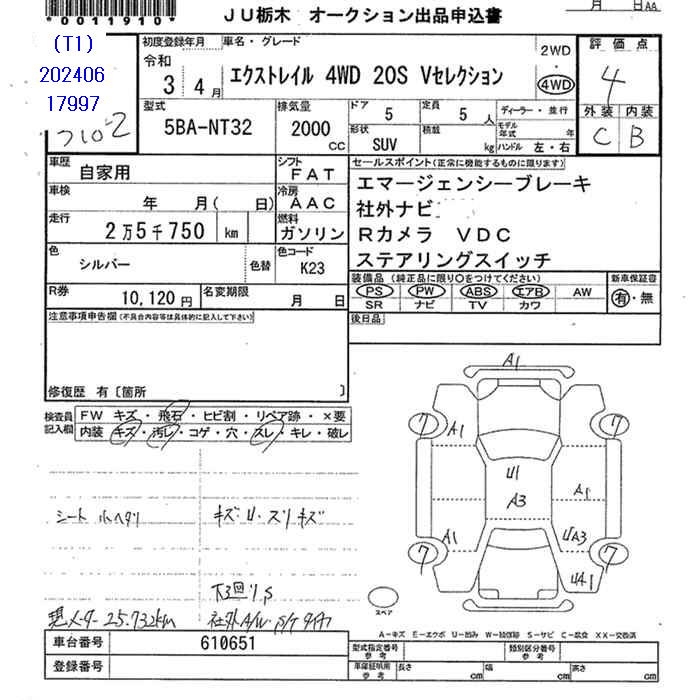 月 日AA
*0011910*
JU栃木 オークション出品申込書
(T1)
202406
17997
初度登録年月 車名・グレード
令和
3 4月
エクストレイル 4WD 20S Vセレクション
2WD
4WD
評価点
4
外装 内装
C B
型式
5BA-NT32
排気量
2000
CC
ドア
5
定員
5人
形状
SUV
積載
kg
ディーラー・並行
モデル年式 年
ハンドル 左・右
車歴
自家用
シフト
FAT
車検
年 月( 日)
冷房
AAC
走行
2万5千750 km
燃料
ガソリン
色
シルバー
色替
色コード
K23
R券
10,120円
名変期限
月 日
セールスポイント(正常に機能するものに限ります)
エマージェンシーブレーキ
社外ナビ
Rカメラ VDC
ステアリングスイッチ
装備品(純正品に限り○をつけてください)
PS PW ABS エアB AW
SR ナビ TV カワ
新車保証書
有・無
後日品
注意事項申告欄(不具合内容等は具体的に記入して下さい)
修復歴 有〔箇所 〕
検査員記入欄
FW キズ・飛石・ヒビ割・リペア跡・×要
内装 キズ・汚レ・コゲ・穴・スレ・キレ・破レ
シート 小ヘタリ
キズ U・スリキズ
現メーター 25.732km
社外A/W
A1
7 7
A1
U1
A3
A1
A1
UA3
7 7
UA1
スペア
A-キズ E-エクボ U-凹み W-補修跡 S-サビ C-腐食 XX-交換済
車台番号
610651
登録番号
型式指定番号
参考
類別区分番号
参考
車庫証明用
参考
長さ cm 幅 cm 高さ cm